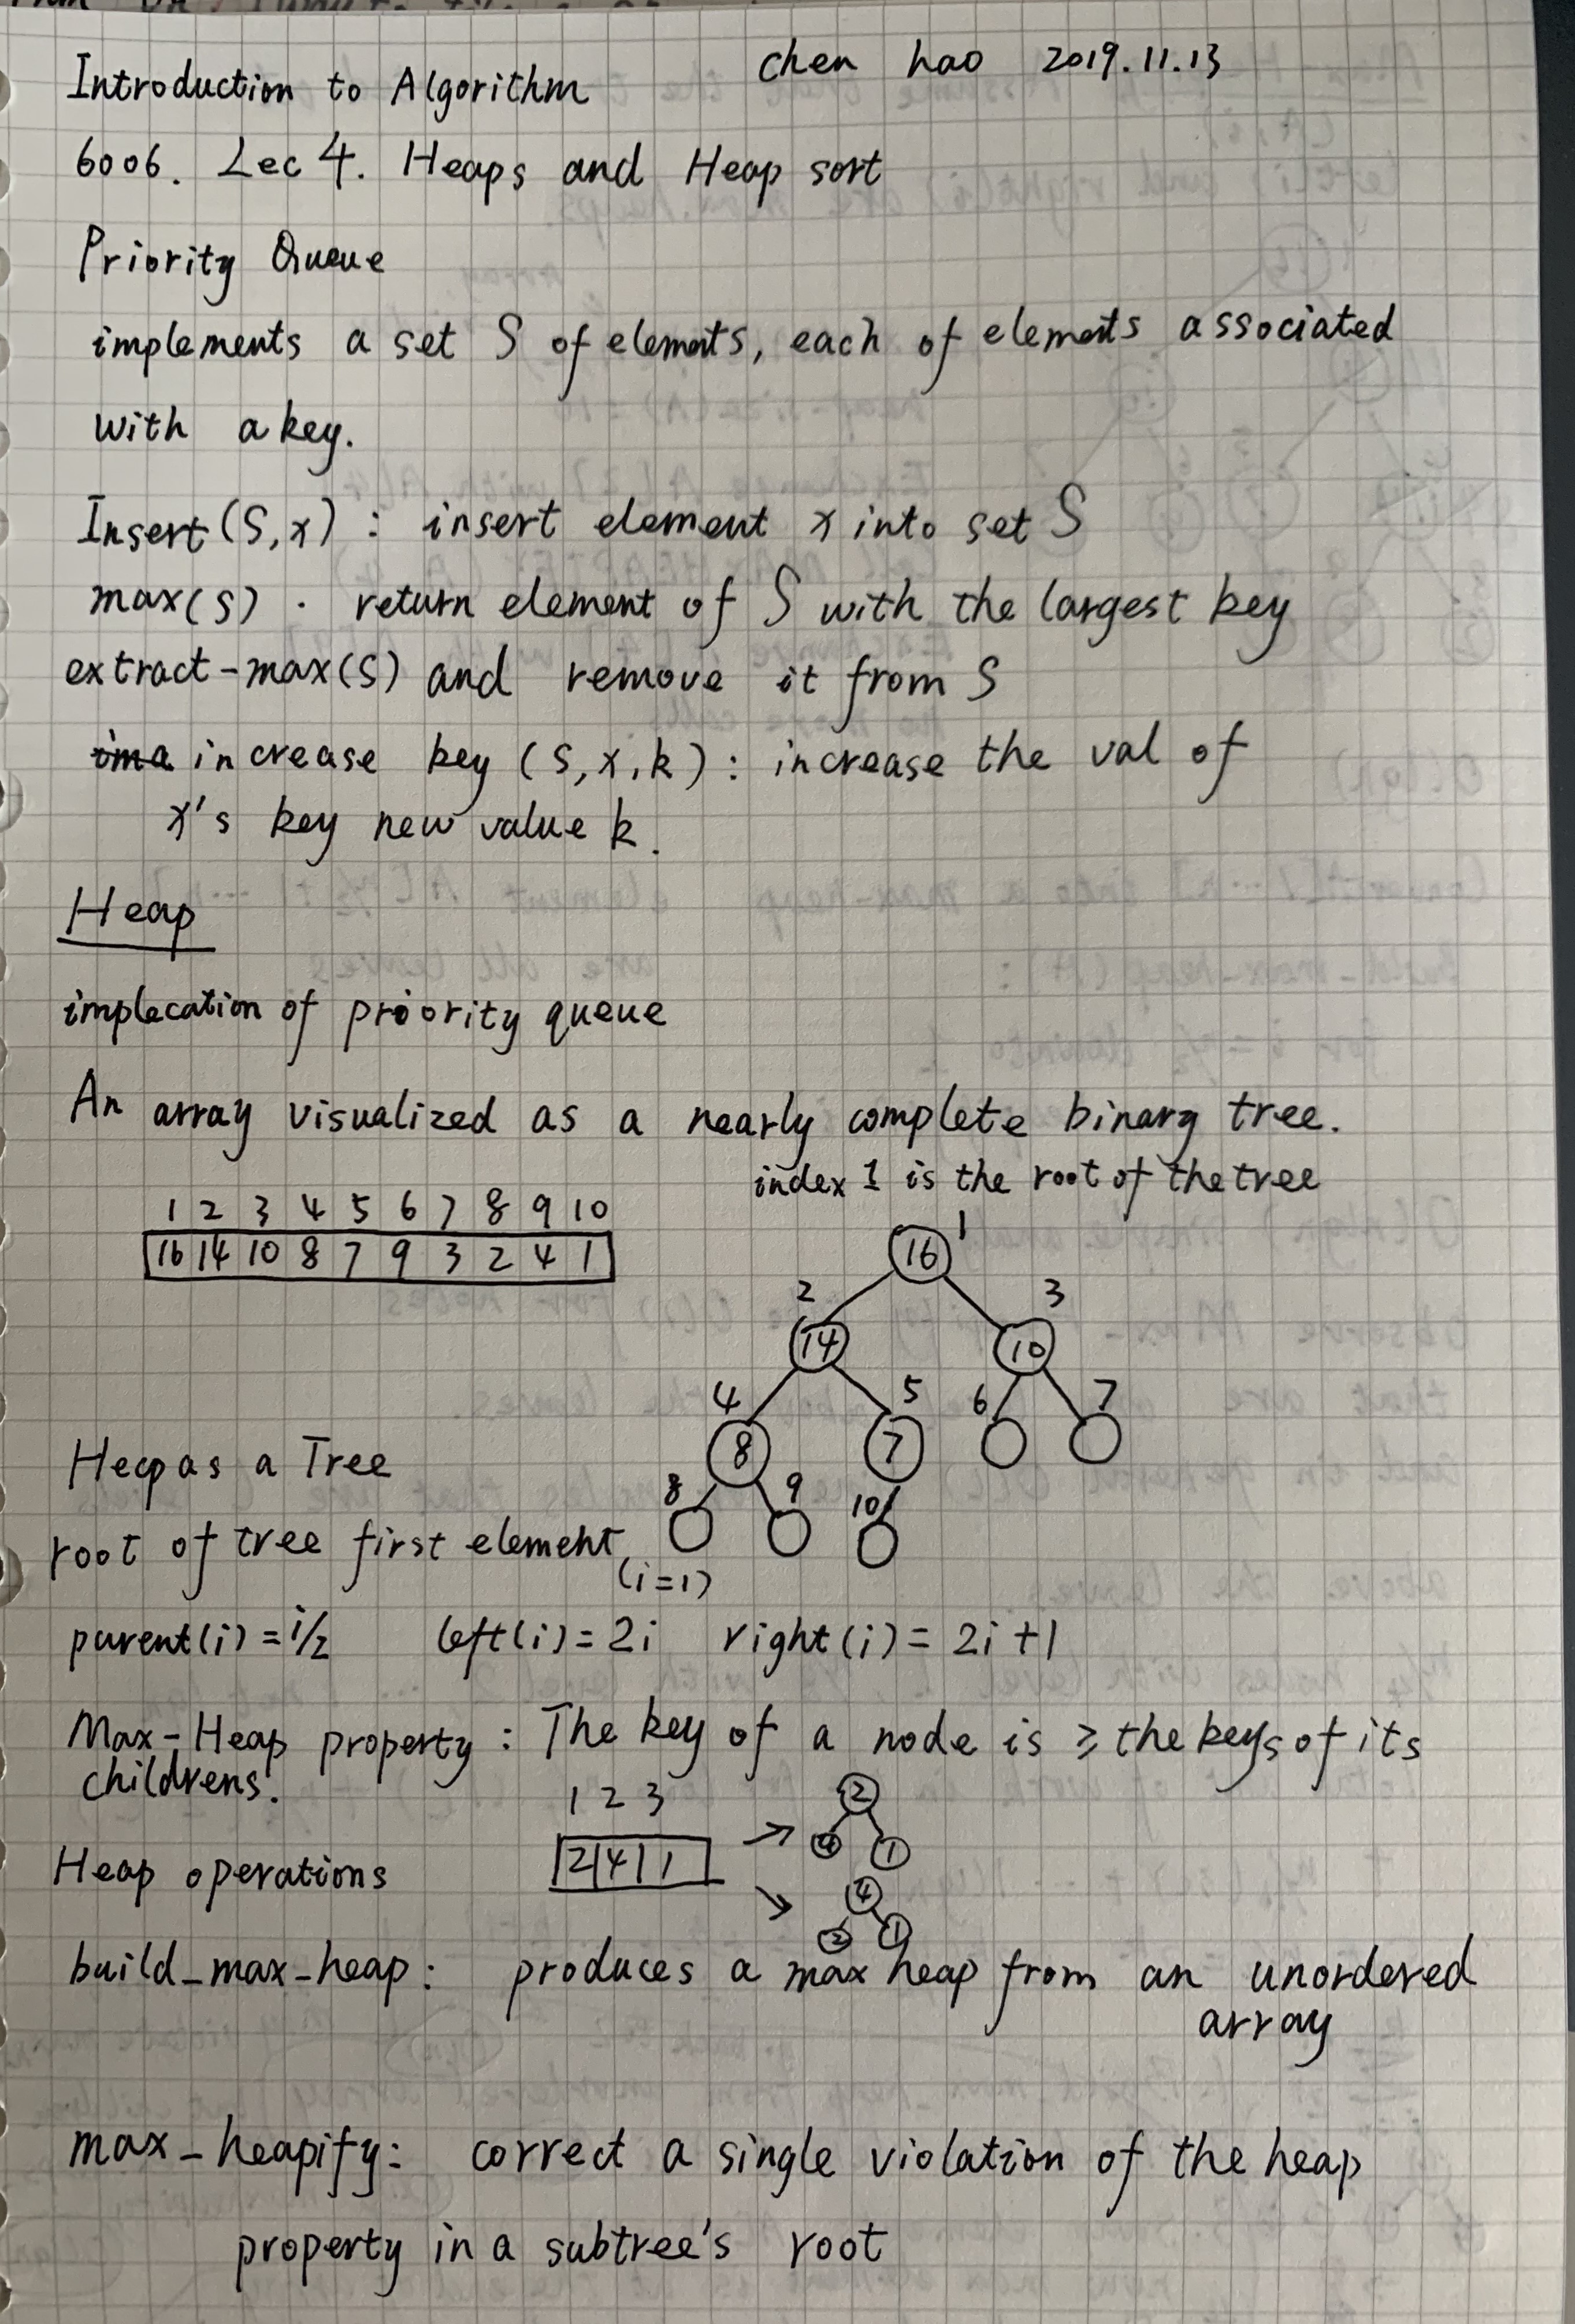 Introduction to Algorithm
chen hao 2019.11.13
6006. Lec 4. Heaps and Heap sort
Priority Queue
implements a set S of elements, each of elements associated
with a key.
Insert(S,x) : insert element x into set S
max(S) . return element of S with the largest key
extract-max(S) and remove it from S
increase key (S,x,k) : increase the val of
x's key new value k.
Heap
implecation of priority queue
An array visualized as a nearly complete binary tree.
index 1 is the root of the tree
1 2 3 4 5 6 7 8 9 10
16 14 10 8 7 9 3 2 4 1
16 1
2 3
14 10
4 5 6 7
8 7
8 9 10
Heap as a Tree
root of tree first element,
(i=1)
parent(i) = i/2 left(i) = 2i right(i) = 2i+1
Max-Heap property : The key of a node is ≥ the keys of its
childrens.
1 2 3
2 4 1
2
4 1
4
2 1
Heap operations
build_max_heap : produces a max heap from an unordered
array
max_heapify : correct a single violation of the heap
property in a subtree's root